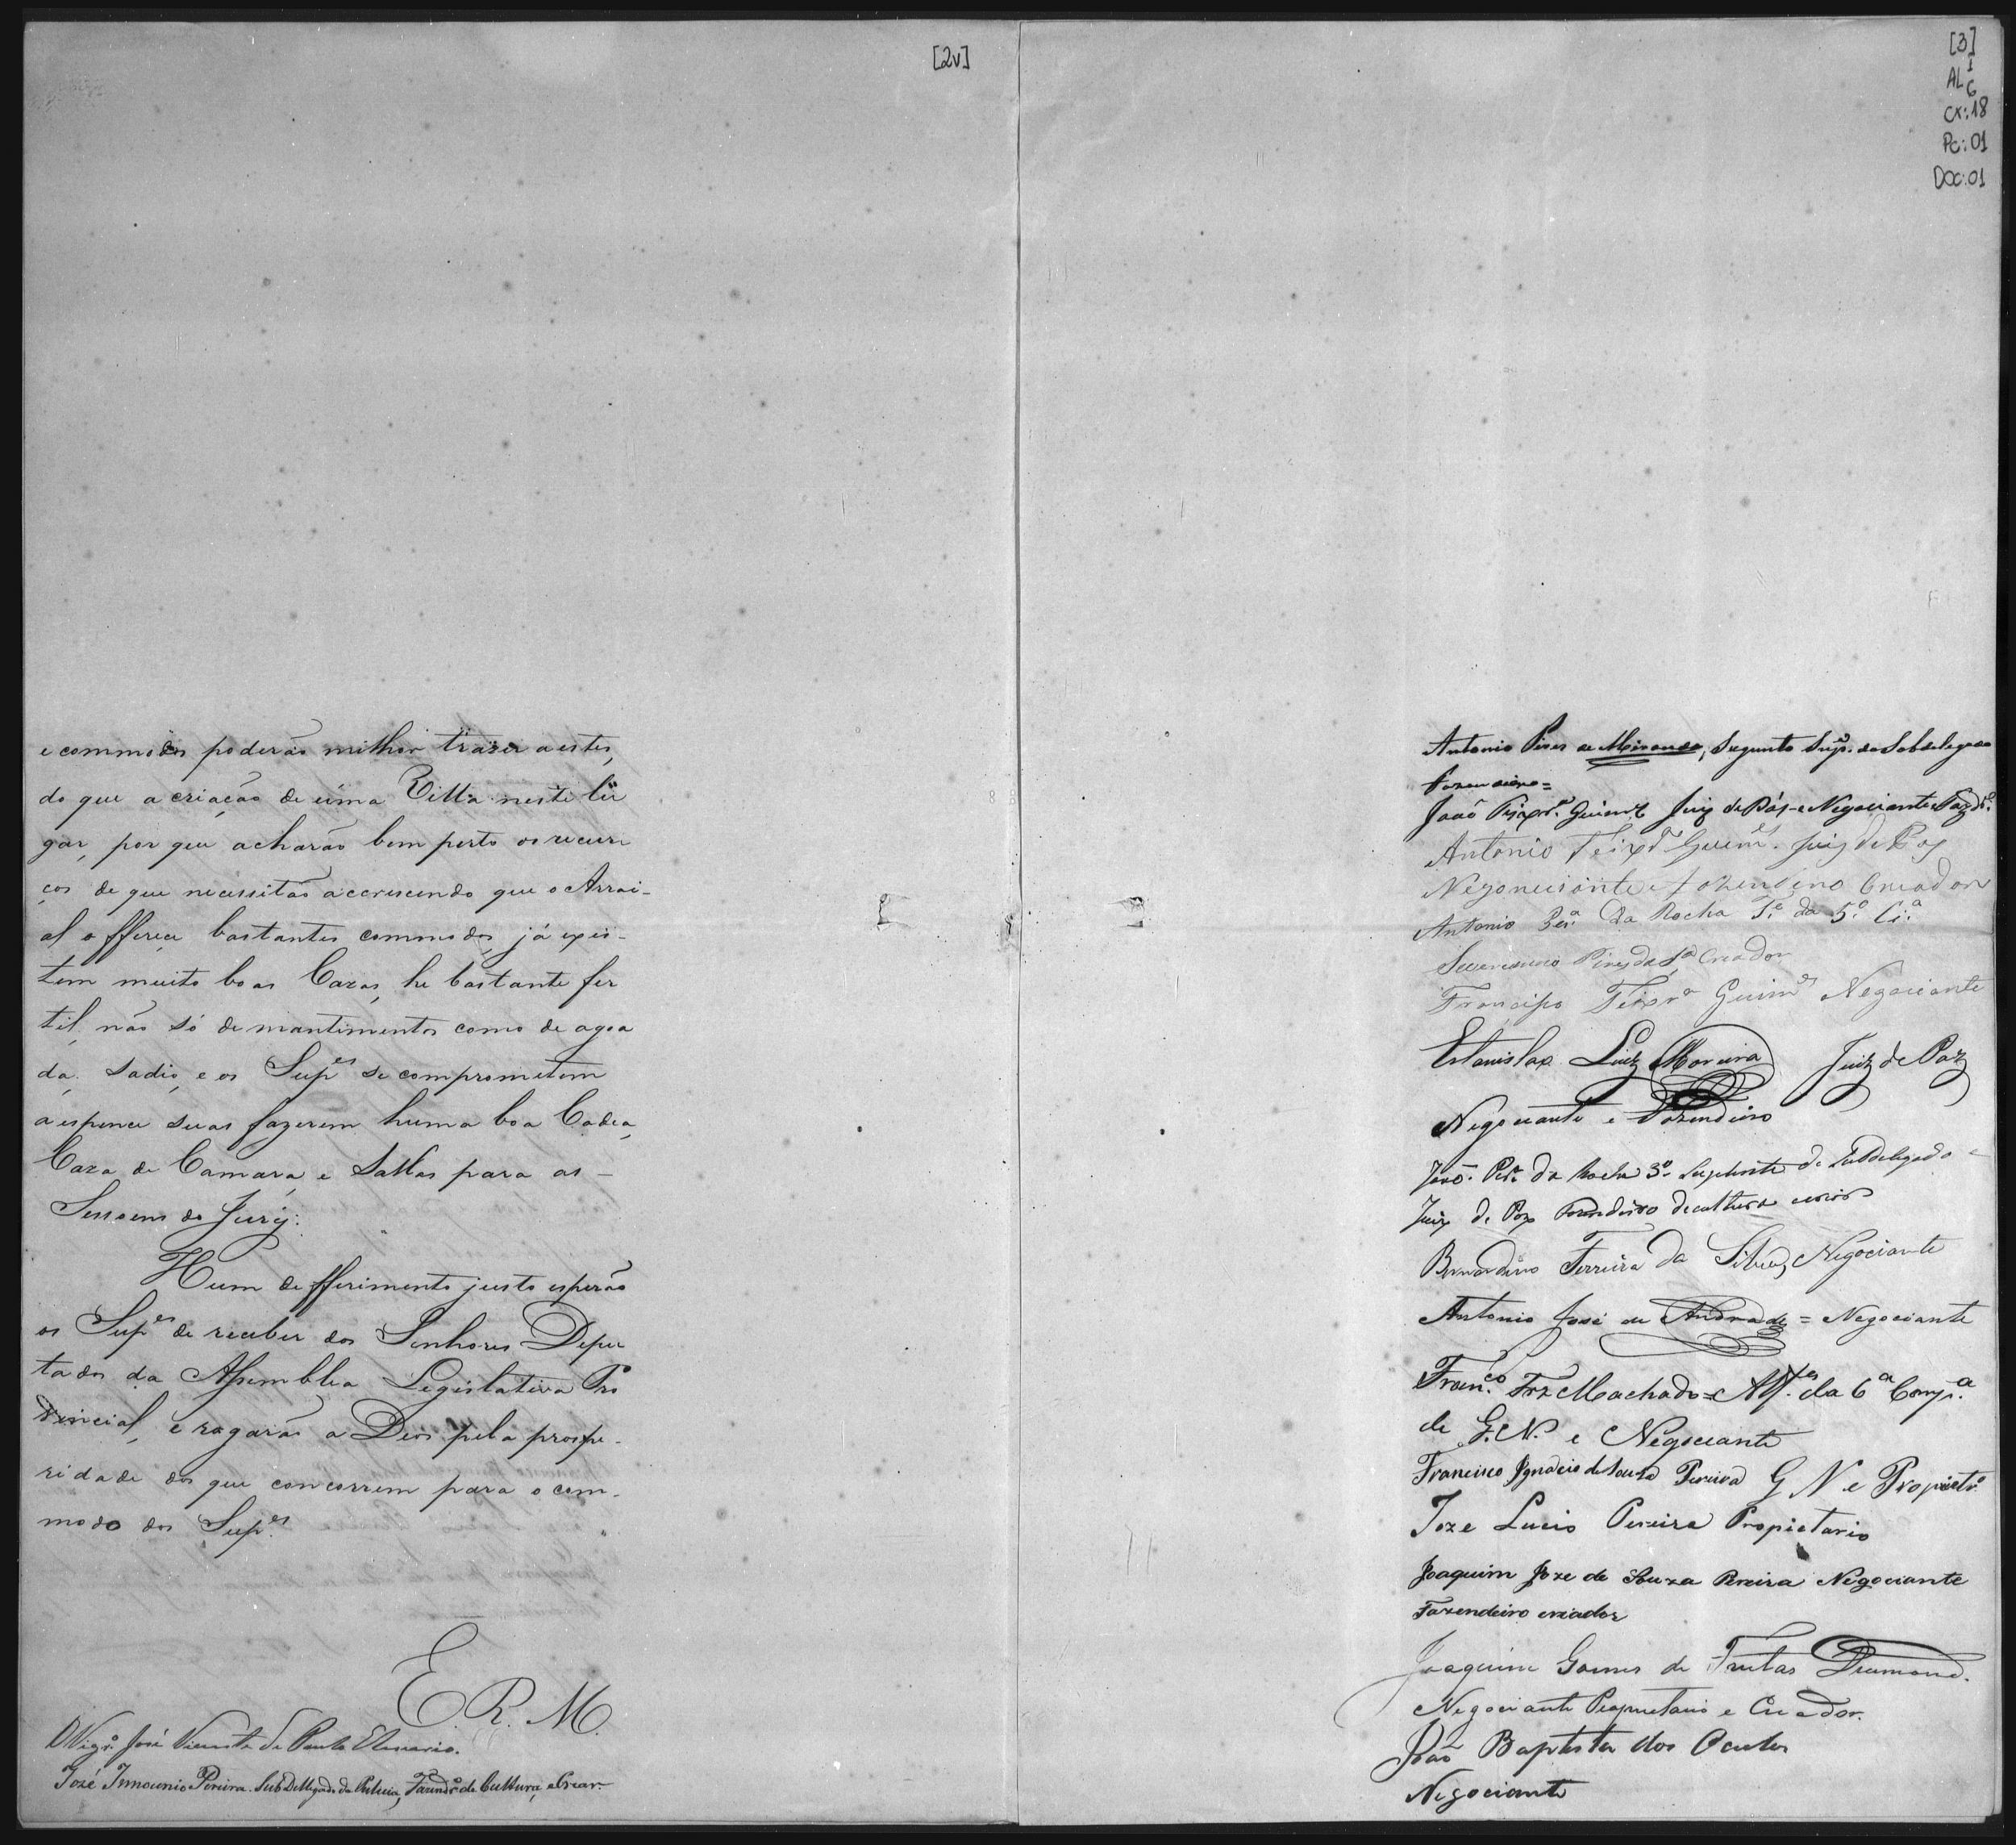 [2v]
e commodos poderáõ milhor trazer a estes,
do que a criaçaõ de uma Villa neste lu
gar, por que acharáõ bem perto os recur
ços de que necessitaõ accrescendo que o Arrai-
al offerece bastantes commodos, já exis-
tem muito boas Cazas, he bastante fer
til, naõ só de mantimentos como de agoa
da, sadio, e os Sup.es se comprometem
a espence suas fazerem huma boa Cadea,
Caza de Camara, e Sallas para as -
Sessoens do Jury.
Hum defferimento justo esperaõ
os Sup.es de receber dos Senhores Depu
tados da Assemblea Legislativa Pro
vincial, e rogaráõ a Deos pela prospe-
ridade dos que concorrem para o com-
modo dos Sup.es
E. R. M.
O Vigr.o José Vicente de Paula Elisiario.
Jozé Innocencio Pereira. SubDellegado da Policia, Fazendr.o de Cultura, e Crear-
[3]
AL 1 6
cx: 18
Pc: 01
DOC: 01
Antonio Pires de Miranda, Segunto Sup. do Sobdelegado
fazendeiro =
João Teixr.a Guimes Juiz de Pás e Negociante Fazdr.o
Antonio Teixr.a Guim.es Juiz de Paz
Negonciante e fazendeiro Creador
Antonio Per.a da Rocha T.e da 5.a Ci.a
Severianno Pires da S.a Creador
Francisco Teixr.a Guim.es Negociante
Estanislao Luiz Moreira Juiz de Paz
Negociante e Fazendeiro
João Per.a da Rocha 3.o Suplente do Subdelegado e
Juiz de Paz Fazendeiro de cultura
Bernardino Ferreira da Silva, Negociante
Antonio José de Andrade = Negociante
Fran.co Frz Machado = Alf.es da 6.a Comp.a
de G. N. e Negociante
Francisco Ignacio de Souza Pereira G N e Propriet.o
Joze Lucio Pereira Propietario
Joaquim Joze de Souza Pereira Negociante
Fazendeiro criador
Joaquim Gomes de Freitas Drumond.
Negociante Proprietario e Creador.
João Baptista dos
Negociante